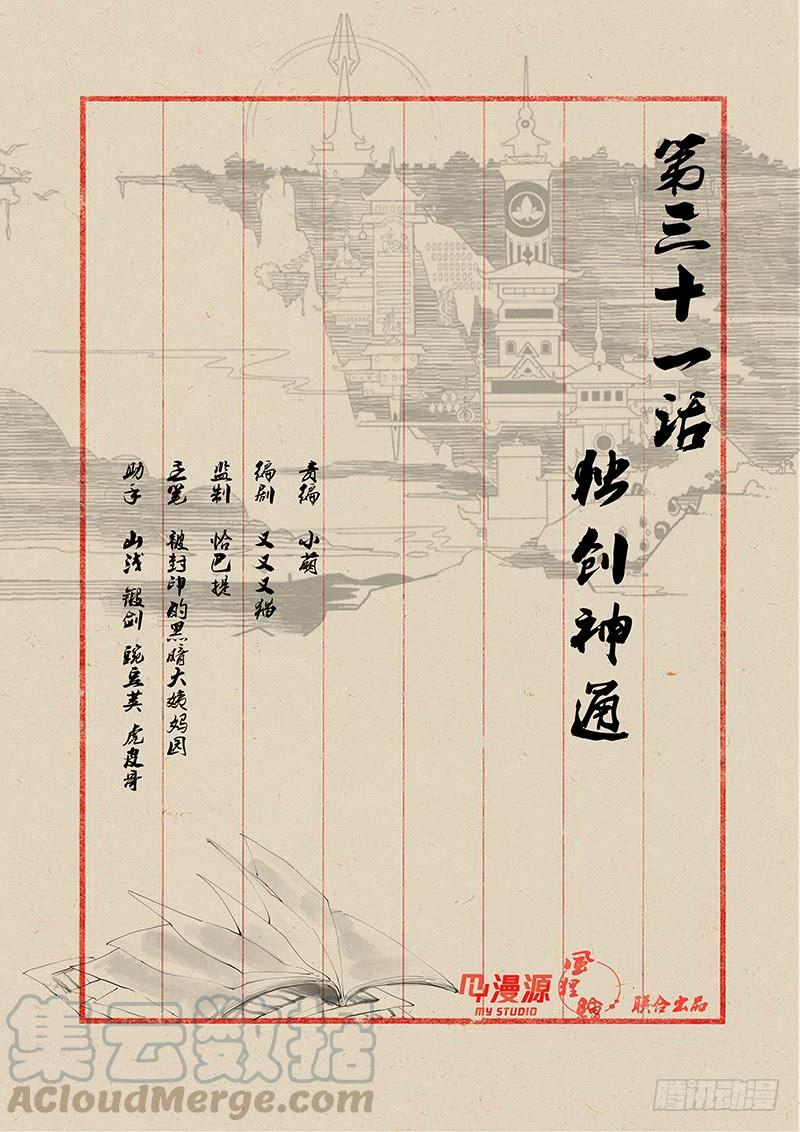 第三十一话
独创神通
责编 小萌
编剧 又又又猫
监制 恰巴提
主笔 被封印的黑暗大姨妈园
助手 山浅 锻剑 豌豆荚 虎皮哥
漫源
MY STUDIO
风狸
联合出品
集云数据
ACloudMerge.com
腾讯动漫